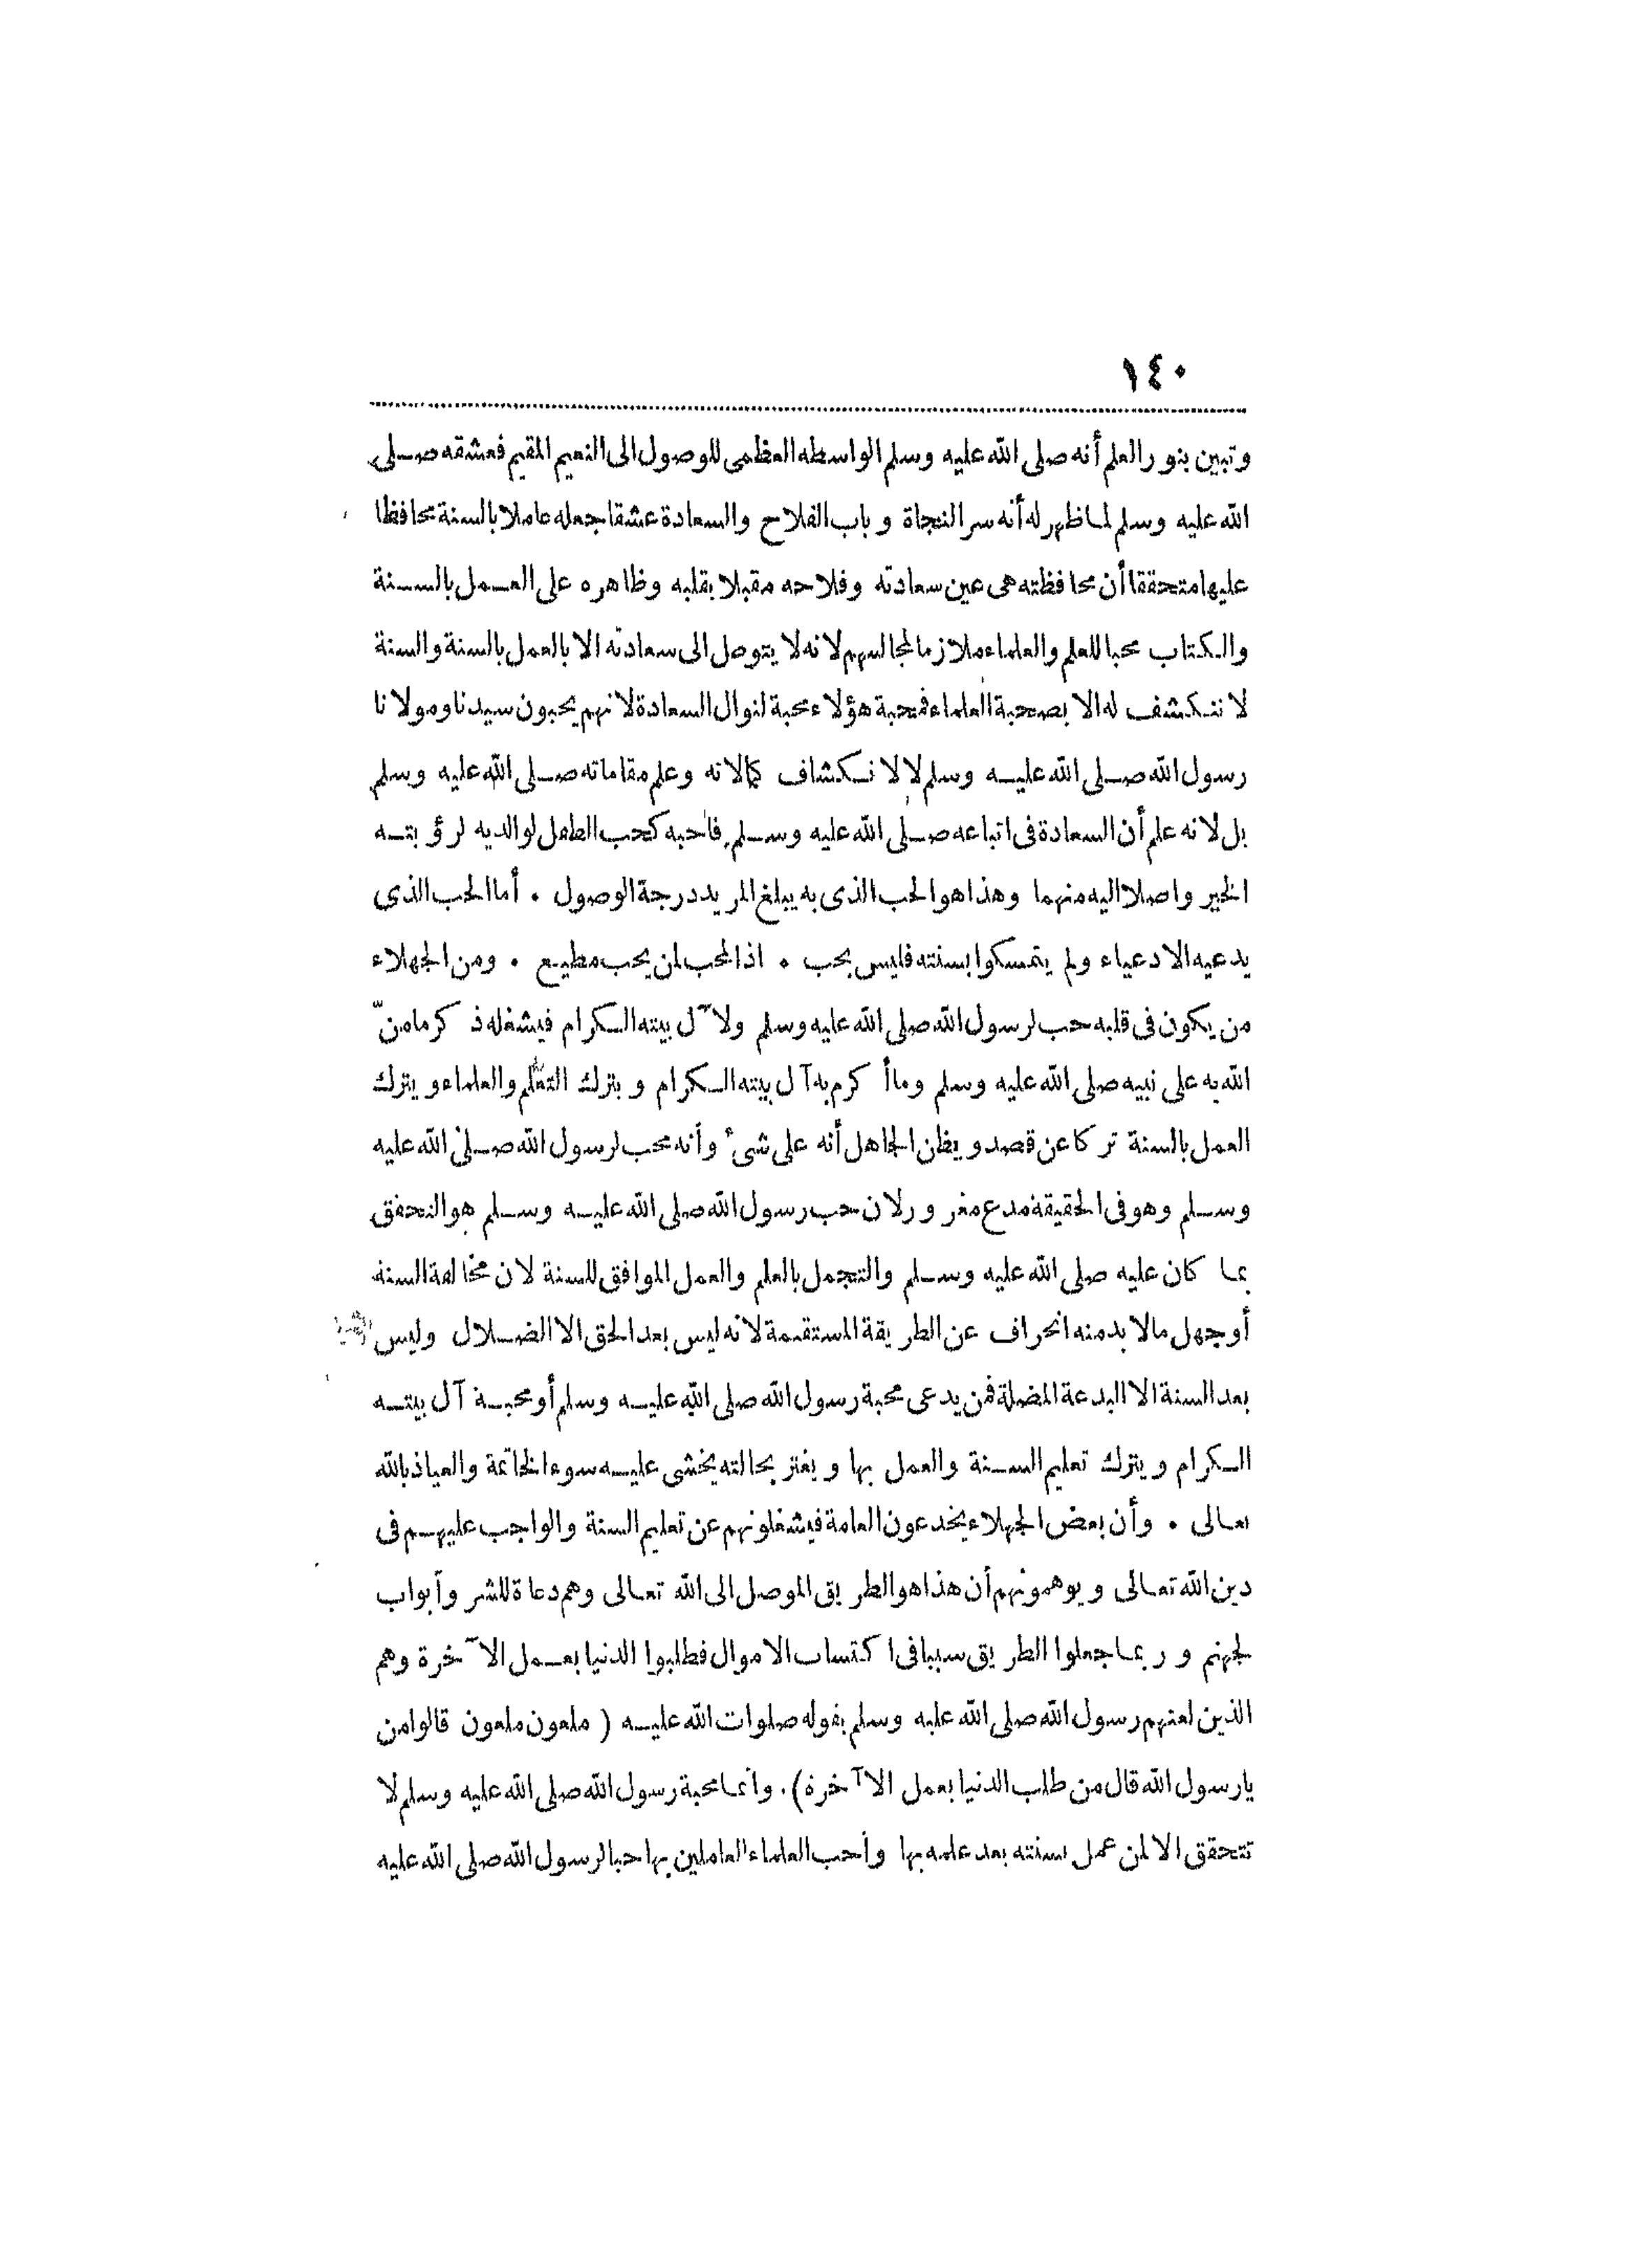 ١٤٠
وتبين بنور العلم أنه صلى الله عليه وسلم الواسطه العظمى للوصول الى النعيم المقيم فعشقه صلى
الله عليه وسلم لما ظهر له أنه سر النجاة وباب الفلاح والسعادة عشقا جعله عاملا بالسنة محافظا
عليها متحققا أن محافظته هى عين سعادته وفلاحه مقبلا بقلبه وظاهره على العمل بالسنة
والكتاب محبا للعلم والعلماء ملازما لمجالسهم لانه لا يتوصل الى سعادته الا بالعمل بالسنة والسنة
لا تنكشف له الا بصحبة العلماء فمحبة هؤلاء محبة لنوال السعادة لانهم يحبون سيدنا ومولانا
رسول الله صلى الله عليه وسلم لا لانكشاف كمالاته وعلم مقاماته صلى الله عليه وسلم
بل لانه علم أن السعادة فى اتباعه صلى الله عليه وسلم فاحبه كحب الطفل لوالديه لرؤيته
الخير واصلا اليه منهما وهذا هو الحب الذى به يبلغ المريد درجة الوصول . أما الحب الذى
يدعيه الادعياء ولم يتمسكوا بسنته فليس بحب . اذ المحب لمن يحب مطيع . ومن الجهلاء
من يكون فى قلبه حب لرسول الله صلى الله عليه وسلم ولآل بيته الكرام فيشغله ذكر ما منّ
الله به على نبيه صلى الله عليه وسلم وما أكرم به آل بيته الكرام ويترك التعلم والعلماء ويترك
العمل بالسنة تركا عن قصد ويظن الجاهل أنه على شئ وأنه محب لرسول الله صلى الله عليه
وسلم وهو فى الحقيقة مدع مغرور لان حب رسول الله صلى الله عليه وسلم هو التحقق
بما كان عليه صلى الله عليه وسلم والتجمل بالعلم والعمل الموافق للسنة لان مخالفة السنة
أو جهل ما لا بد منه انحراف عن الطريقة المستقيمة لانه ليس بعد الحق الا الضلال وليس
بعد السنة الا البدعة المضلة فمن يدعى محبة رسول الله صلى الله عليه وسلم أو محبة آل بيته
الكرام ويترك تعليم السنة والعمل بها ويغتر بحالته يخشى عليه سوء الخاتمة والعياذ بالله
تعالى . وأن بعض الجهلاء يخدعون العامة فيشغلونهم عن تعليم السنة والواجب عليهم فى
دين الله تعالى ويوهمونهم أن هذا هو الطريق الموصل الى الله تعالى وهم دعاة للشر وأبواب
لجهنم وربما جعلوا الطريق سببا فى اكتساب الاموال فطلبوا الدنيا بعمل الآخرة وهم
الذين لعنهم رسول الله صلى الله عليه وسلم بقوله صلوات الله عليه ( ملعون ملعون قالوا من
يارسول الله قال من طلب الدنيا بعمل الآخرة). وانما محبة رسول الله صلى الله عليه وسلم لا
تتحقق الا لمن عمل بسنته بعد علمه بها وأحب العلماء العاملين بها حبا لرسول الله صلى الله عليه